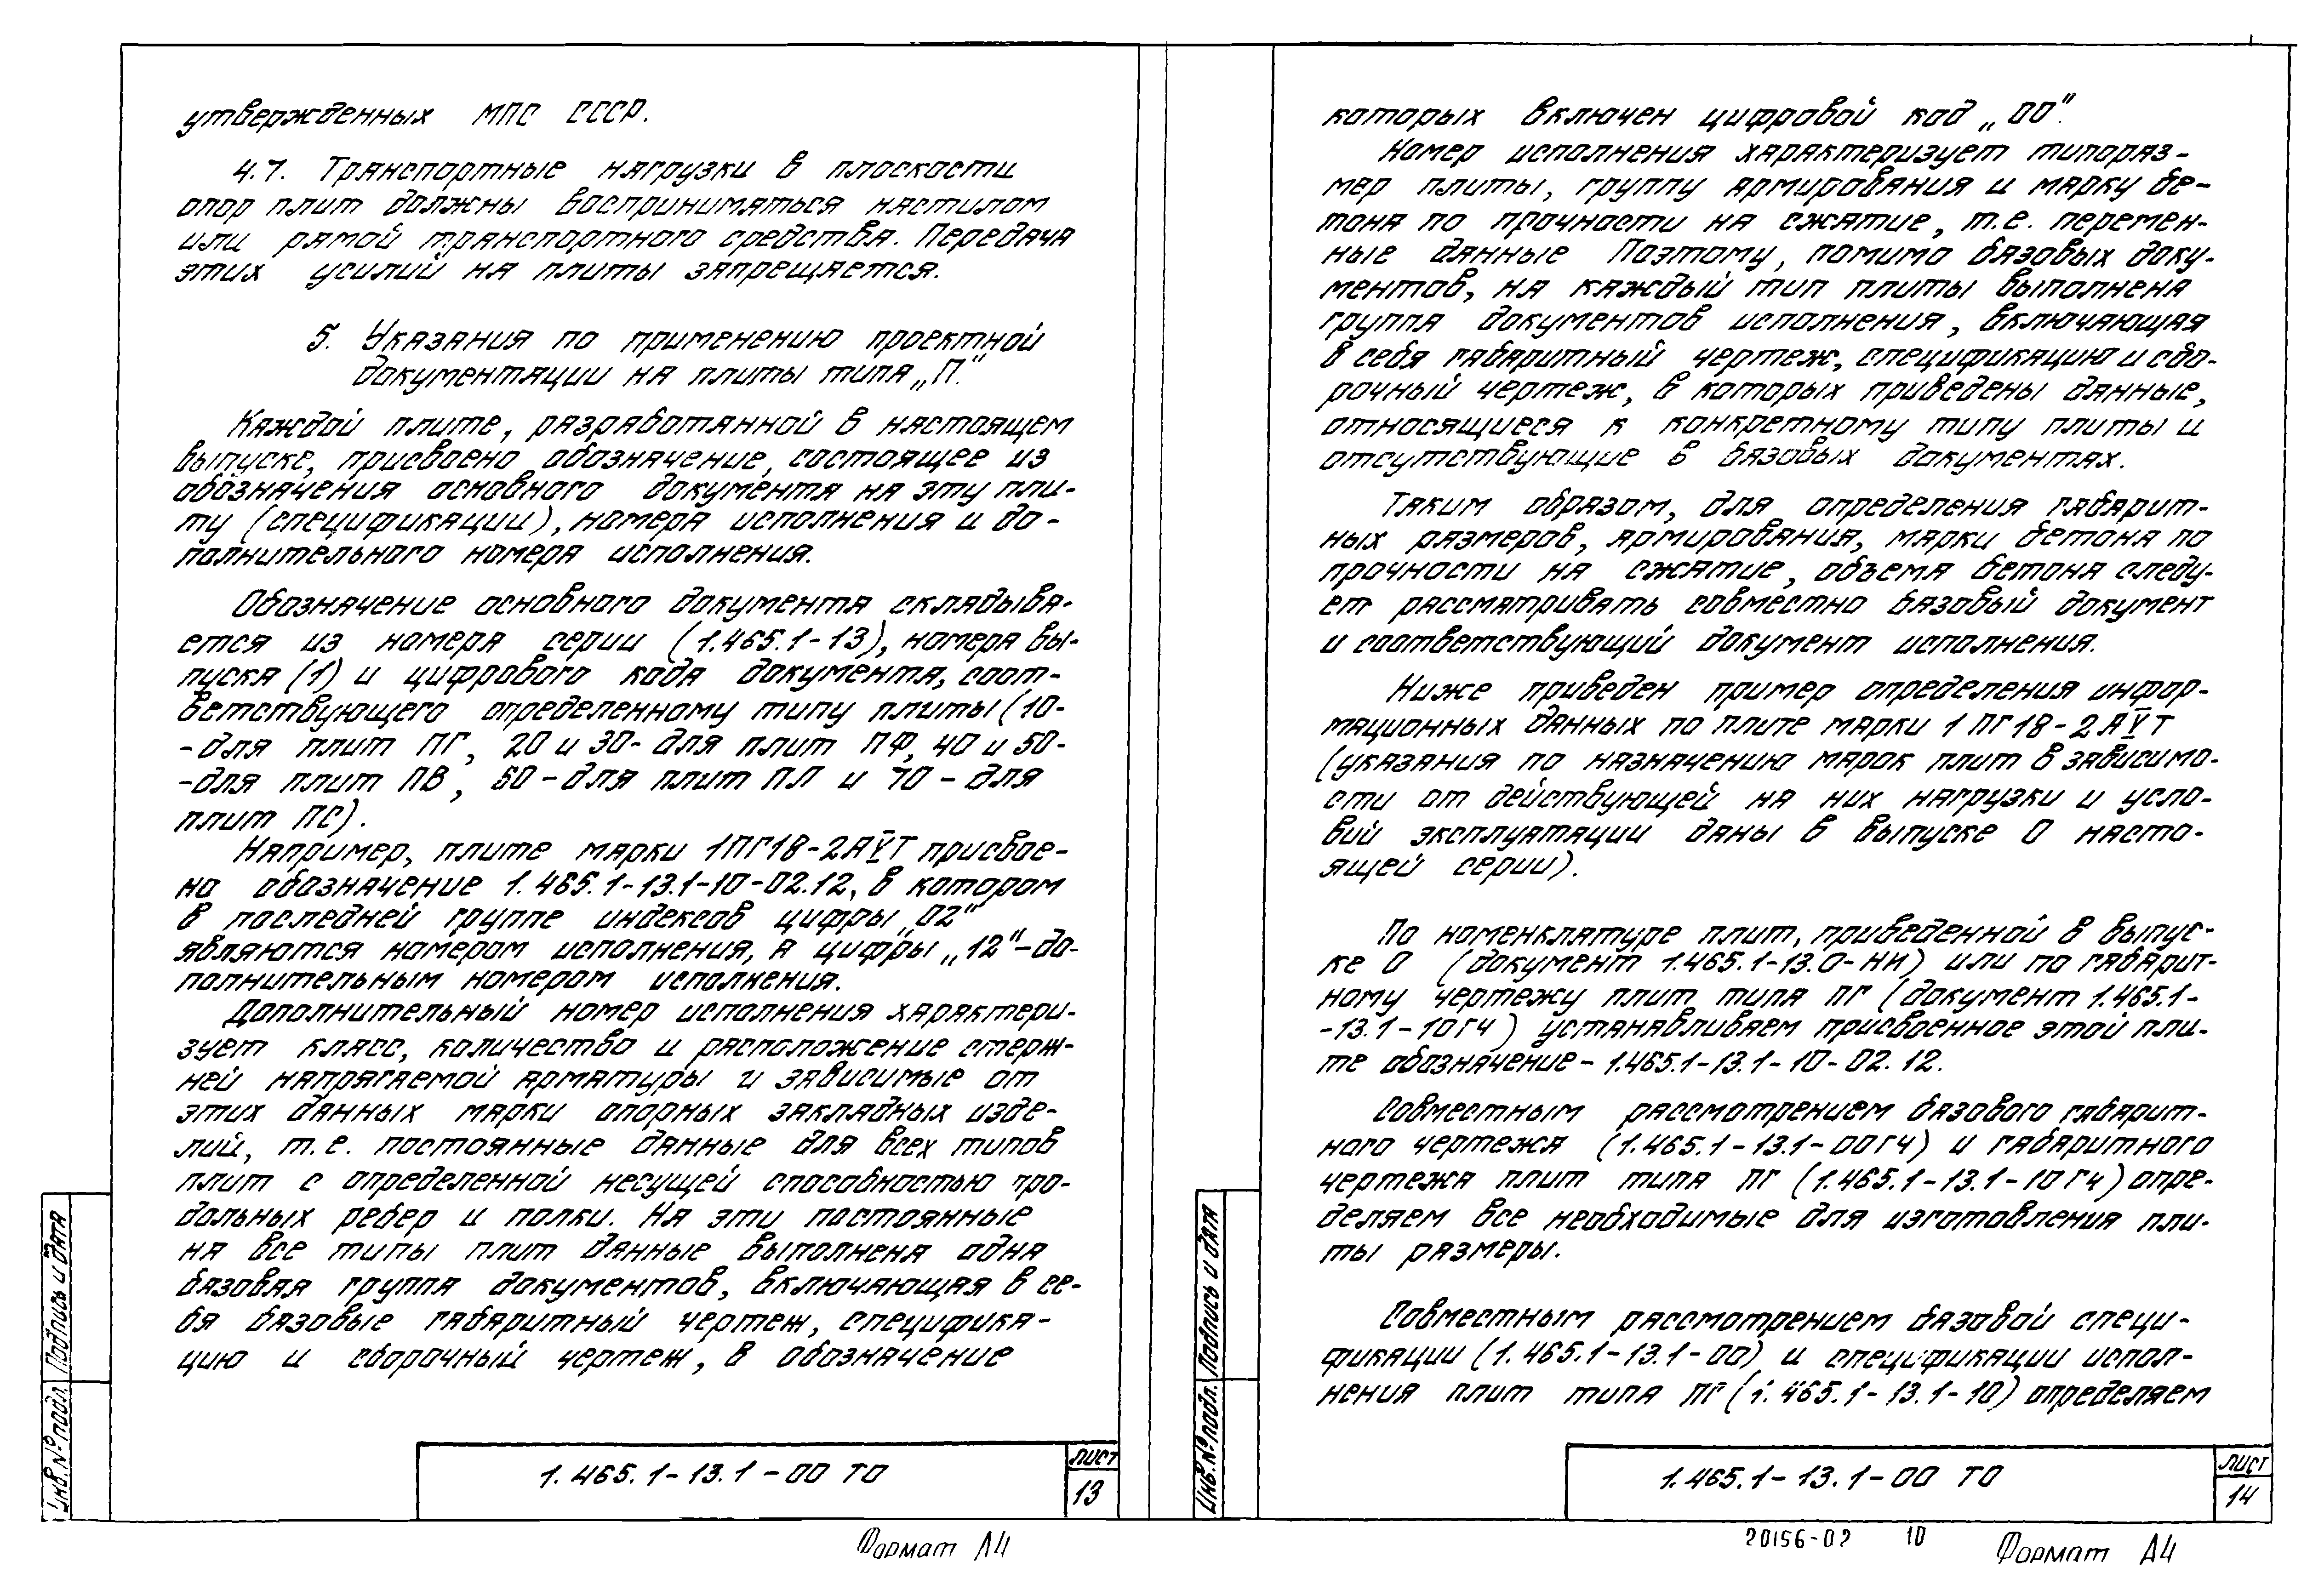 утвержденных МПС СССР.
4.7. Транспортные нагрузки в плоскости
опор плит должны восприниматься настилом
или рамой транспортного средства. Передача
этих усилий на плиты запрещается.
5. Указания по применению проектной
документации на плиты типа „П."
Каждой плите, разработанной в настоящем
выпуске, присвоено обозначение, состоящее из
обозначения основного документа на эту пли-
ту (спецификации), номера исполнения и до-
полнительного номера исполнения.
Обозначение основного документа складыва-
ется из номера серии (1.465.1-13), номера вы-
пуска (1) и цифрового кода документа, соот-
ветствующего определенному типу плиты (10-
-для плит ПГ, 20 и 30- для плит ПФ, 40 и 50-
-для плит ПВ, 60-для плит ПЛ и 70- для
плит ПС).
Например, плите марки 1ПГ18-2АVТ присвое-
но обозначение 1.465.1-13.1-10-02.12, в котором
в последней группе индексов цифры „02"
являются номером исполнения, а цифры „12"-до-
полнительным номером исполнения.
Дополнительный номер исполнения характери-
зует класс, количество и расположение стерж-
ней напрягаемой арматуры и зависимые от
этих данных марки опорных закладных изде-
лий, т.е. постоянные данные для всех типов
плит с определенной несущей способностью про-
дольных ребер и полки. На эти постоянные
на все типы плит данные выполнена одна
базовая группа документов, включающая в се-
бя базовые габаритный чертеж, специфика-
цию и сборочный чертеж, в обозначение
1.465.1-13.1-00 ТО
лист
13
Инв.№подл.
Подпись и дата
Формат А4
которых включен цифровой код „00".
Номер исполнения характеризует типораз-
мер плиты, группу армирования и марку бе-
тона по прочности на сжатие, т.е. перемен-
ные данные Поэтому, помимо базовых доку-
ментов, на каждый тип плиты выполнена
группа документов исполнения, включающая
в себя габаритный чертеж, спецификацию и сбо-
рочный чертеж, в которых приведены данные,
относящиеся к конкретному типу плиты и
отсутствующие в базовых документах.
Таким образом, для определения габарит-
ных размеров, армирования, марки бетона по
прочности на сжатие, объема бетона следу-
ет рассматривать совместно базовый документ
и соответствующий документ исполнения.
Ниже приведен пример определения инфор-
мационных данных по плите марки 1ПГ18-2АVТ
(указания по назначению марок плит в зависимо-
сти от действующей на них нагрузки и усло-
вий эксплуатации даны в выпуске 0 насто-
ящей серии).
По номенклатуре плит, приведенной в выпус-
ке 0 (документ 1.465.1-13.0-НИ) или по габарит-
ному чертежу плит типа ПГ (документ 1.465.1-
-13.1-10ГЧ) устанавливаем присвоенное этой пли-
те обозначение-1.465.1-13.1-10-02.12.
Совместным рассмотрением базового габарит-
ного чертежа (1.465.1-13.1-00ГЧ) и габаритного
чертежа плит типа ПГ (1.465.1-13.1-10ГЧ) опре-
деляем все необходимые для изготовления пли-
ты размеры.
Совместным рассмотрением базовой специ-
фикации (1.465.1-13.1-00) и спецификации испол-
нения плит типа ПГ (1.465.1-13.1-10) определяем
1.465.1-13.1-00 ТО
лист
14
Инв.№подл.
Подпись и дата
20156-02 10
Формат А4